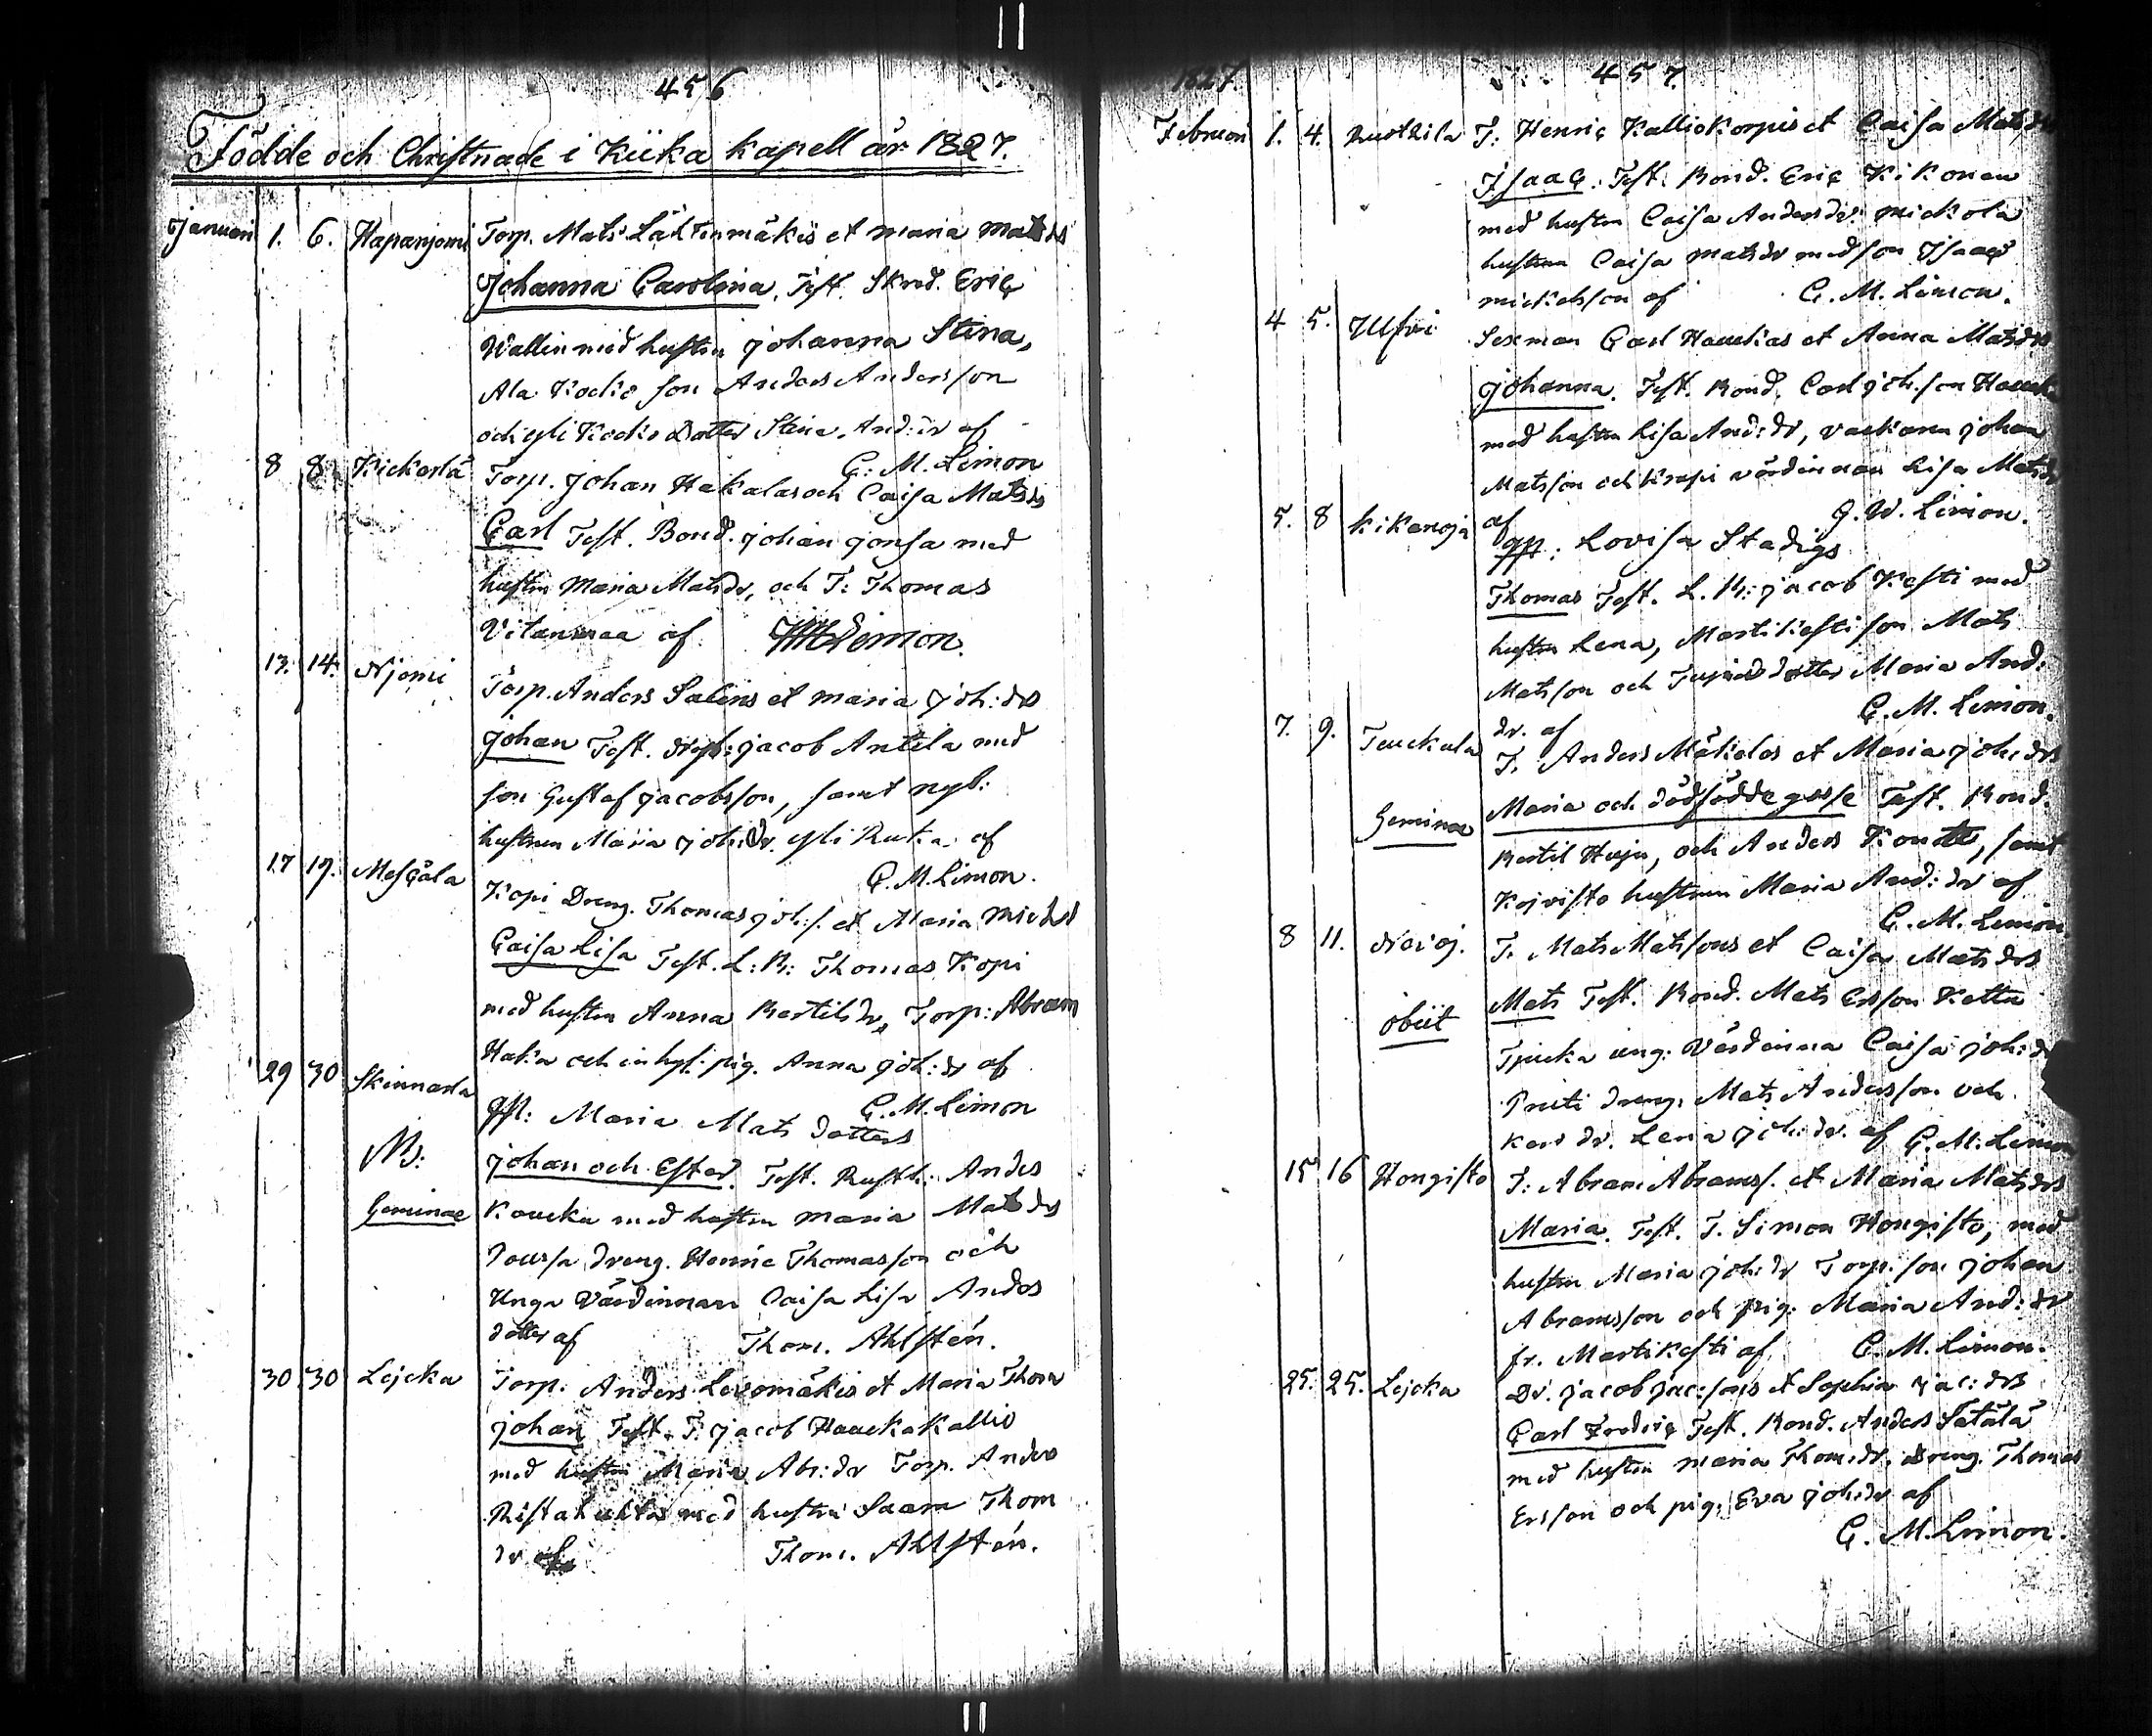 456
Födde och Christnade i Kiika kapell år 1827.
Januari 1. 6. Hapanjomi Torp. Mats Lähtenmäkis et maria mats drs
Johanna Carolina. Test. Skrd. Eric
Wallin med hustru Johanna Stina,
Ala Kockis son Anders Andersson
och yli Kockis dotter Stina And: dr af
G: M. Limon
8 8 Kickerlä Torp. Johan Hakalas och Caisa Mats drs
Carl Test. Bond. Johan Jonsa med
hustru Maria Mats dr, och T: Thomas
Vitanmaa af GM Limon.
13. 14. Njomi Torp. Anders Salens et maria Joh: drs
Johan Test. Nyb: Jacob Antila med
son Gustaf Jacobsson, samt nyb:
hustrun Maria Joh: Dr. yli Ruka af
G. M. Limon.
17 19. Mesgäla Kopi Dreng. Thomas Joh: s. et Maria Mich drs
Caisa Lisa Test. L: B: Thomas Kopi
med hustru Anna Bertils dr, Torp: Abram
Haka och inhys. pig. Anna Joh: dr af
G. M. Limon
29 30 Skinnarla qpl: Maria Mats dotters
NB: Johan och Ester. Test. Rusth: Anders
Geminae Koucka med hustru maria Mats drs
Doussa dreng. Henric Thomasson och
Unga Värdinnan Caisa Lisa Anders
dotter af Thom. Ahlstén.
30 30 Lejcka Torp. Anders Levomäkis et Maria Thom
Johan Test. T: Jacob Hauckakallio
med hustru Maria Abr: dr Torp. Anders
Ristahuhta med hustru Saara Thom
dr af Thom. Ahlstén.
1827. 457.
Februari 1. 4. Rustkila T: Henric Kalliokorpis et Caisa Mats drs
Isaac. Test: Bond. Eric Kikonen
med hustru Caisa Anders dr. mickola
hustrun Caisa mats dr med son Isaac
mickelsson af G. M. Limon.
4 5. Illfvi Sexman Carl Hauckas et Anna Mats drs
Johanna. Test. Bond. Carl Joh. son Haucka
med hustru Lisa And: dr, Vackara Johan
Matsson och Krapi värdinnan Lisa Mats dr
af G. M. Limon.
5. 8 Kikanoja qpl: Lovisa Stadigs
Thomas Test. L. B: Jacob Kesti med
hustru Lena, Martikesti son Mats
Matsson och dotter Maria And:
dr. af G. M. Limon.
7. 9. Teuckula T. Anders Mäkelas et Maria Joh: drs
Geminae Maria och dödfödde gosse Test. Bond.
Bertil Huju, och Anders Kontti, samt
Kojvisto hustrun Maria And: dr af
G. M. Limon
8 11. Novoj. T. Mats Matssons et Caisa Mats drs
obiit Mats Test. Bond. Mats Ersson Ketta
Tjucka ung: Värdinna Caisa Joh: dr
Priiti dreng. Mats Andersson och
Kars dr. Lena Joh: dr. af G. M. Limon
15 16 Hongisto T: Abram Abrams s. et Maria Mats drs
Maria. Test. T. Simon Hongisto, med
hustru Maria Joh: dr Torp. son Johan
Abramsson och pig: Maria And: dr
fr. Martikesti af G. M. Limon.
25. 25. Lejcka Dr. Jacob Jac: sons et Sophia Jac: drs
Carl Fredric Test. Bond. Anders Sätälä
med hustru maria Thom: dr. dreng. Thomas
Ersson och pig. Eva Joh: dr af
G. M. Limon.